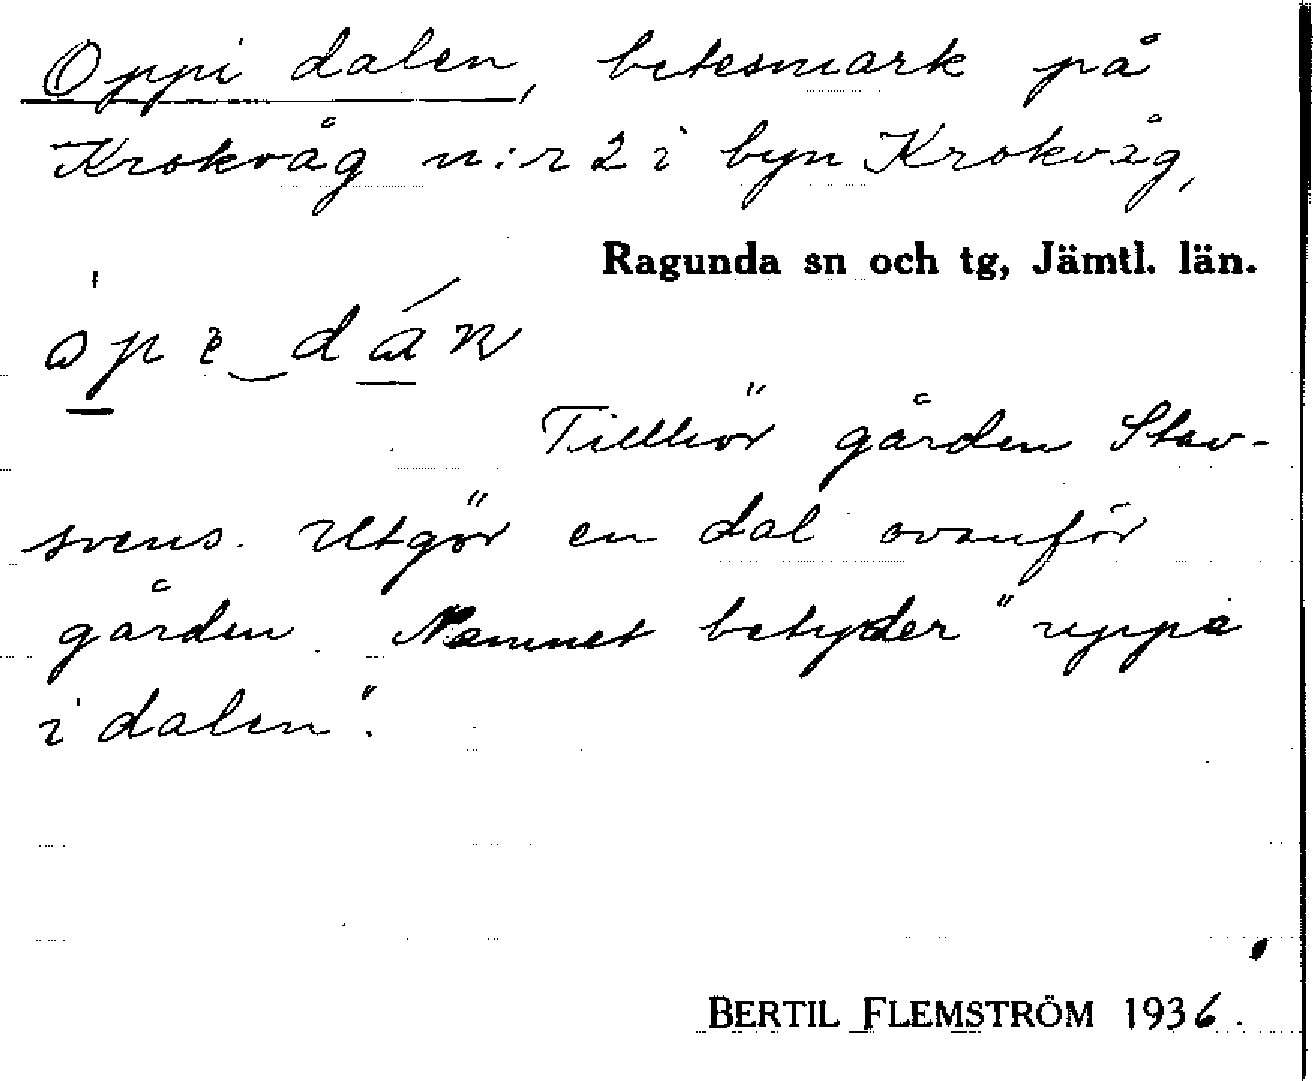 Oppi dalen, betesmark på
Krokvåg n:r 2 i byn Krokvåg,
Ragunda sn och tg, Jämtl. län.
Tillhör gården Stav-
svens. Utgör en dal ovanför
gården. Namnet betyder "uppe
i dalen".
BERTIL FLEMSTRÖM 1936.